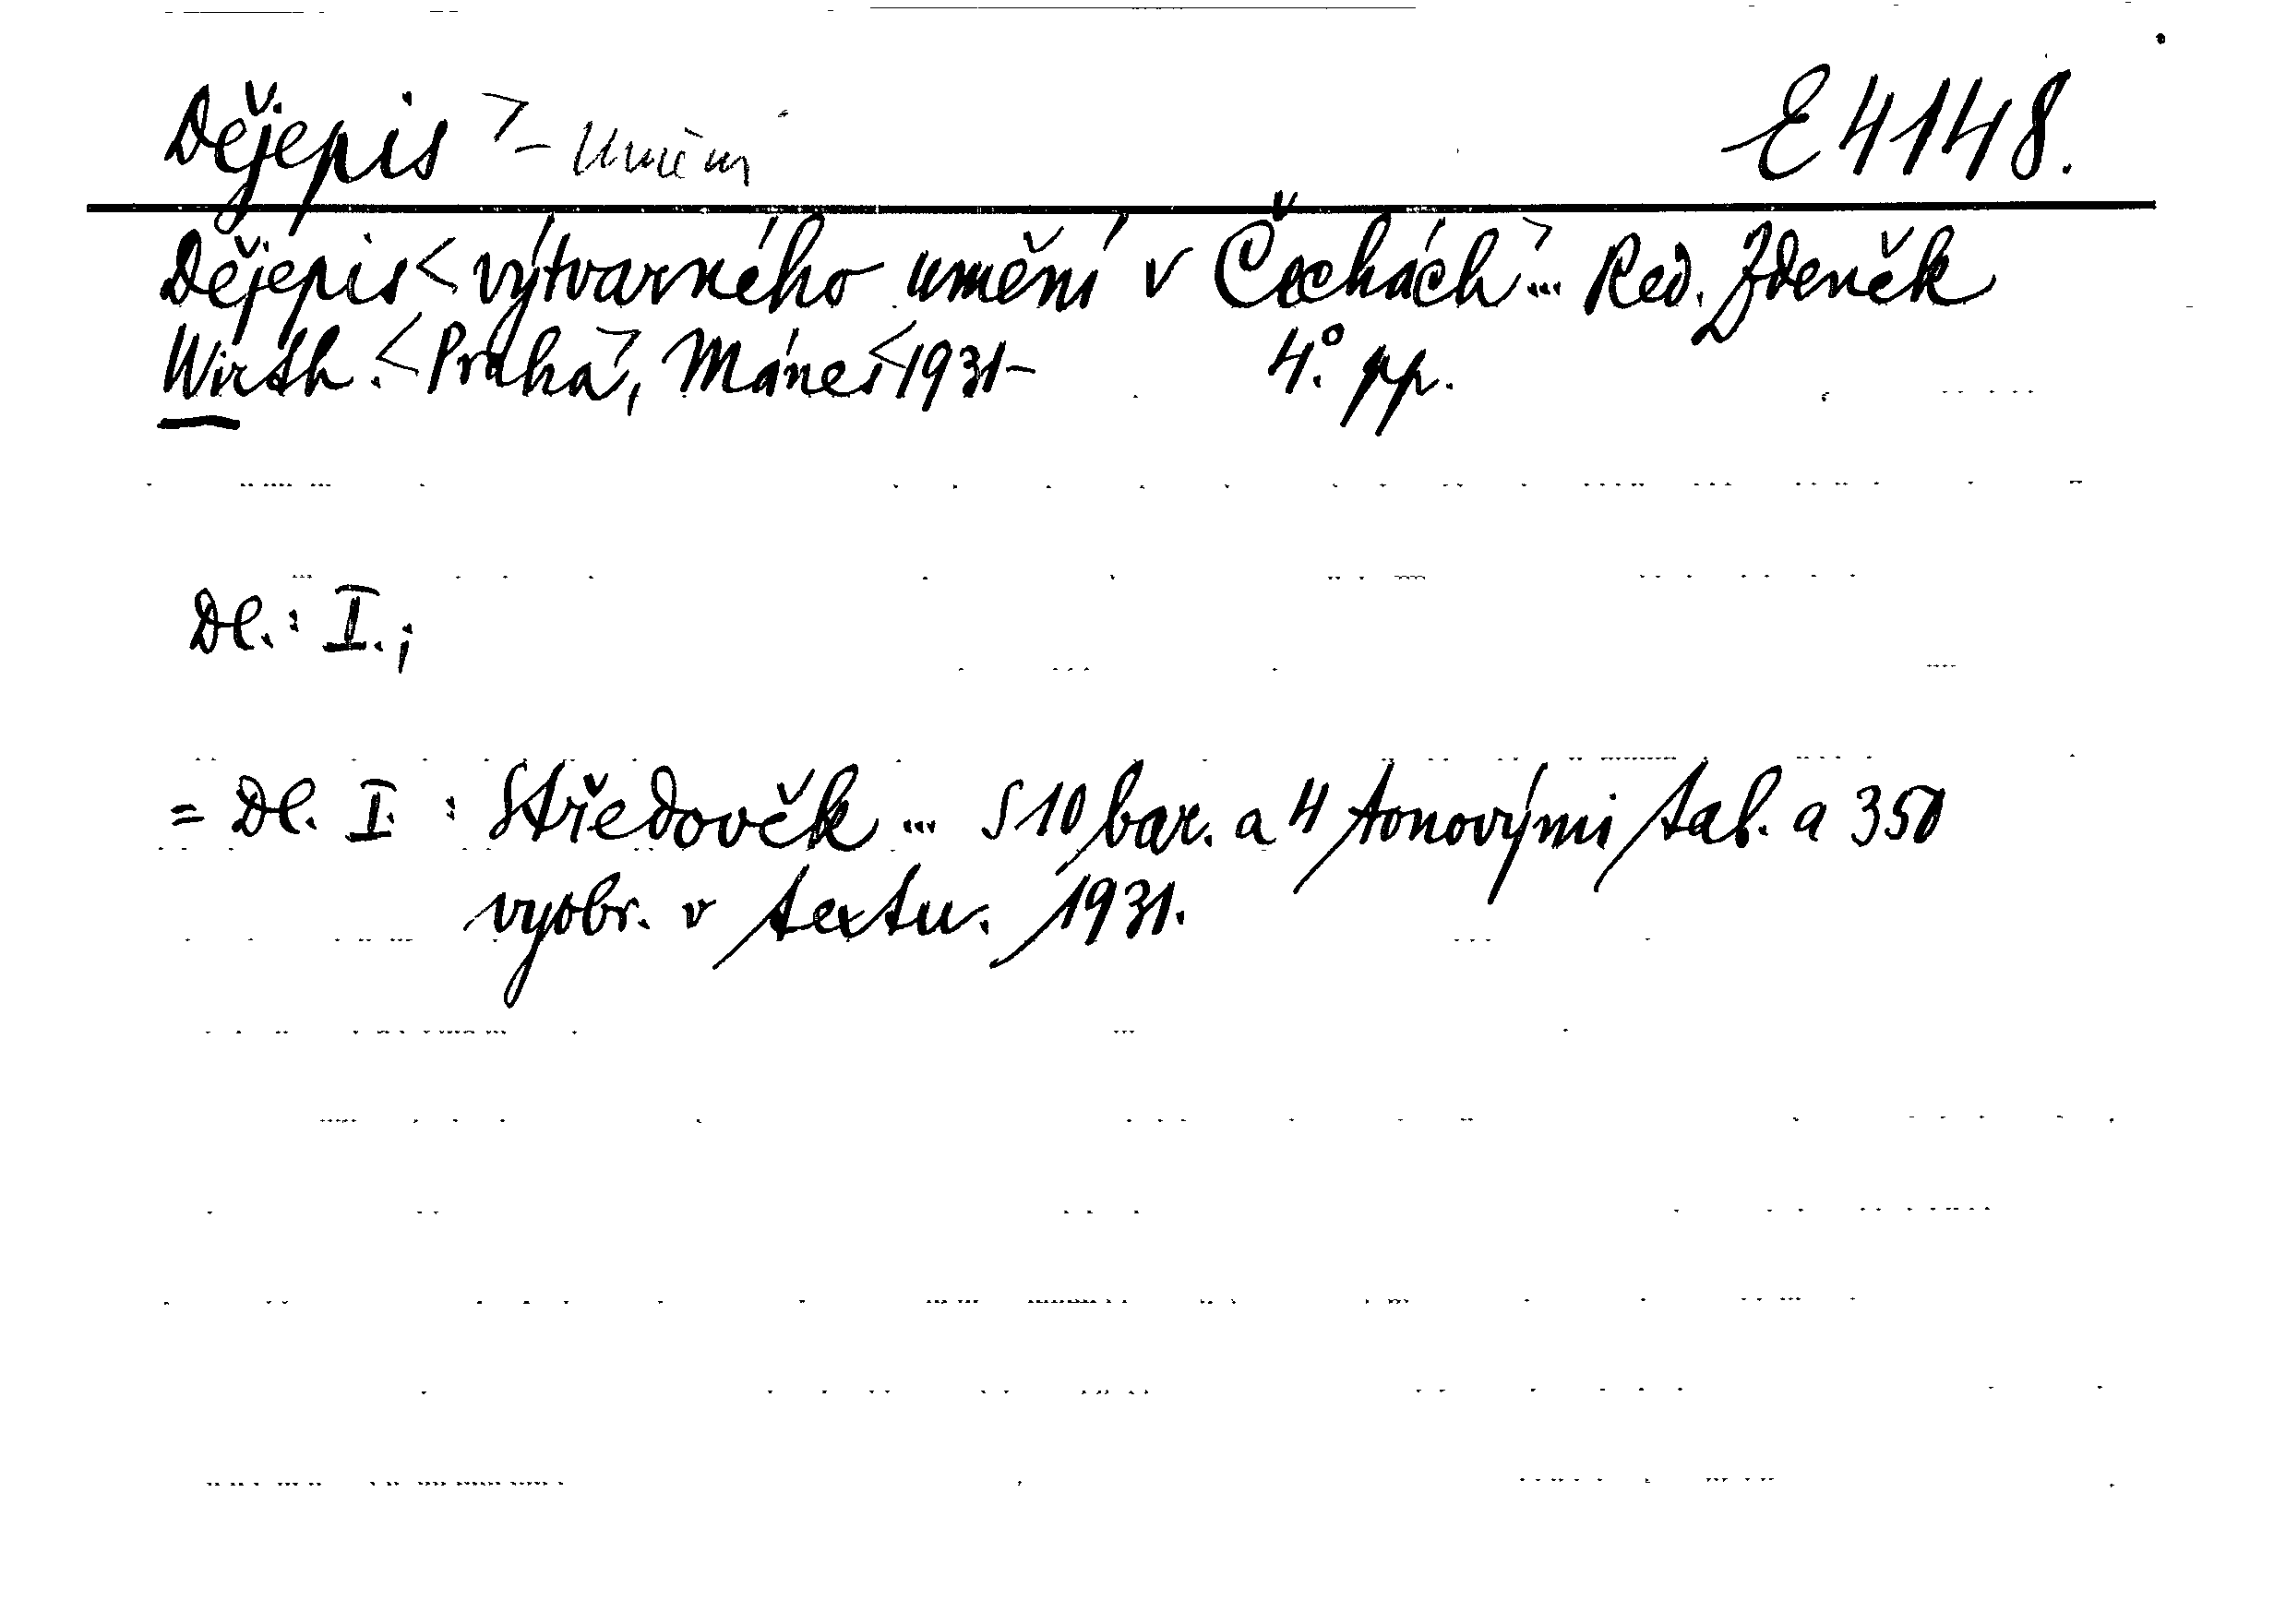 Dějepis > - umění E 4148.
Dějepis < výtvarného umění v Čechách > ... Red. Zdeněk
Wirth. < Praha >, Mánes < 1931- 4.° pp.
Dl. : I. ;
= Dl. I. : Středověk ... S 10 bar. a 4 tonovými tab. a 350
vyobr. v textu. 1931.